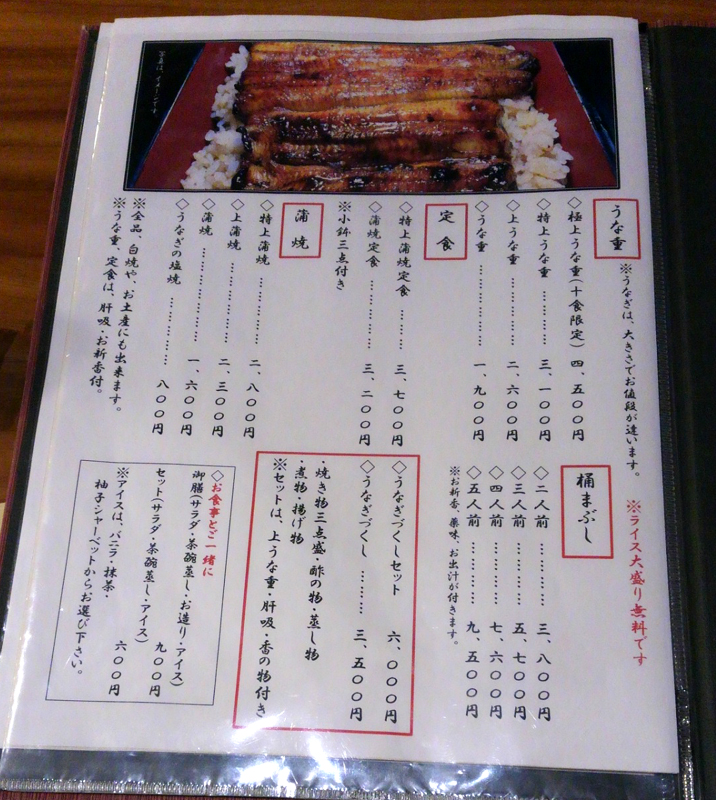 写真は、イメージです
うな重
※うなぎは、大きさでお値段が違います。
※ライス大盛り無料です
◇極上うな重(十食限定) 四、五〇〇円
◇特上うな重 ………… 三、一〇〇円
◇上うな重 ………… 二、六〇〇円
◇うな重 ………… 一、九〇〇円
定食
◇特上蒲焼定食 ………… 三、七〇〇円
◇蒲焼定食 ………… 三、二〇〇円
※小鉢三点付き
蒲焼
◇特上蒲焼 ………… 二、八〇〇円
◇上蒲焼 ………… 二、三〇〇円
◇蒲焼 ………… 一、六〇〇円
◇うなぎの塩焼 ………… 八〇〇円
※全品、白焼や、お土産にも出来ます。
※うな重、定食は、肝吸・お新香付。
桶まぶし
◇二人前 ………… 三、八〇〇円
◇三人前 ………… 五、七〇〇円
◇四人前 ………… 七、六〇〇円
◇五人前 ………… 九、五〇〇円
※お新香、薬味、お出汁が付きます。
◇うなぎづくしセット 六、〇〇〇円
◇うなぎづくし ……… 三、五〇〇円
・焼き物三点盛・酢の物・蒸し物
・煮物・揚げ物
※セットは、上うな重・肝吸・香の物付き
◇お食事とご一緒に
御膳(サラダ・茶碗蒸し・お造り・アイス) 九〇〇円
セット(サラダ・茶碗蒸し・アイス) 六〇〇円
※アイスは、バニラ・抹茶・
柚子シャーベットからお選び下さい。